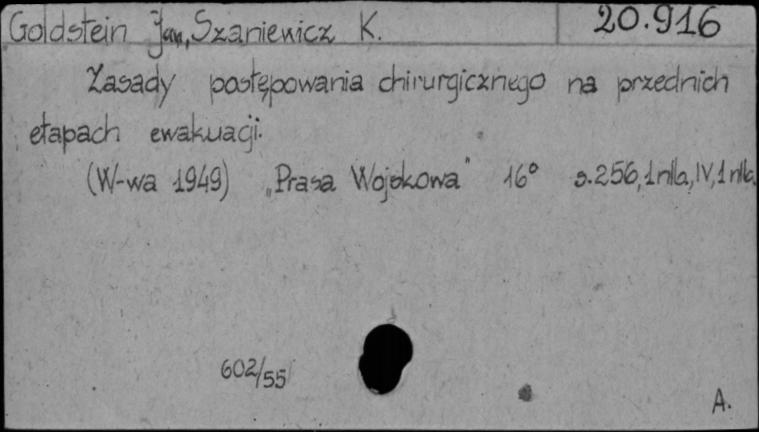 Goldstein Jan, Szaniewicz K. 20.916
Zasady postępowania chirurgicznego na przednich
etapach ewakuacji.
(W-wa 1949) „Prasa Wojskowa" 16° s.256, 1 nlb, IV, 1 nlb.
602/55
A.